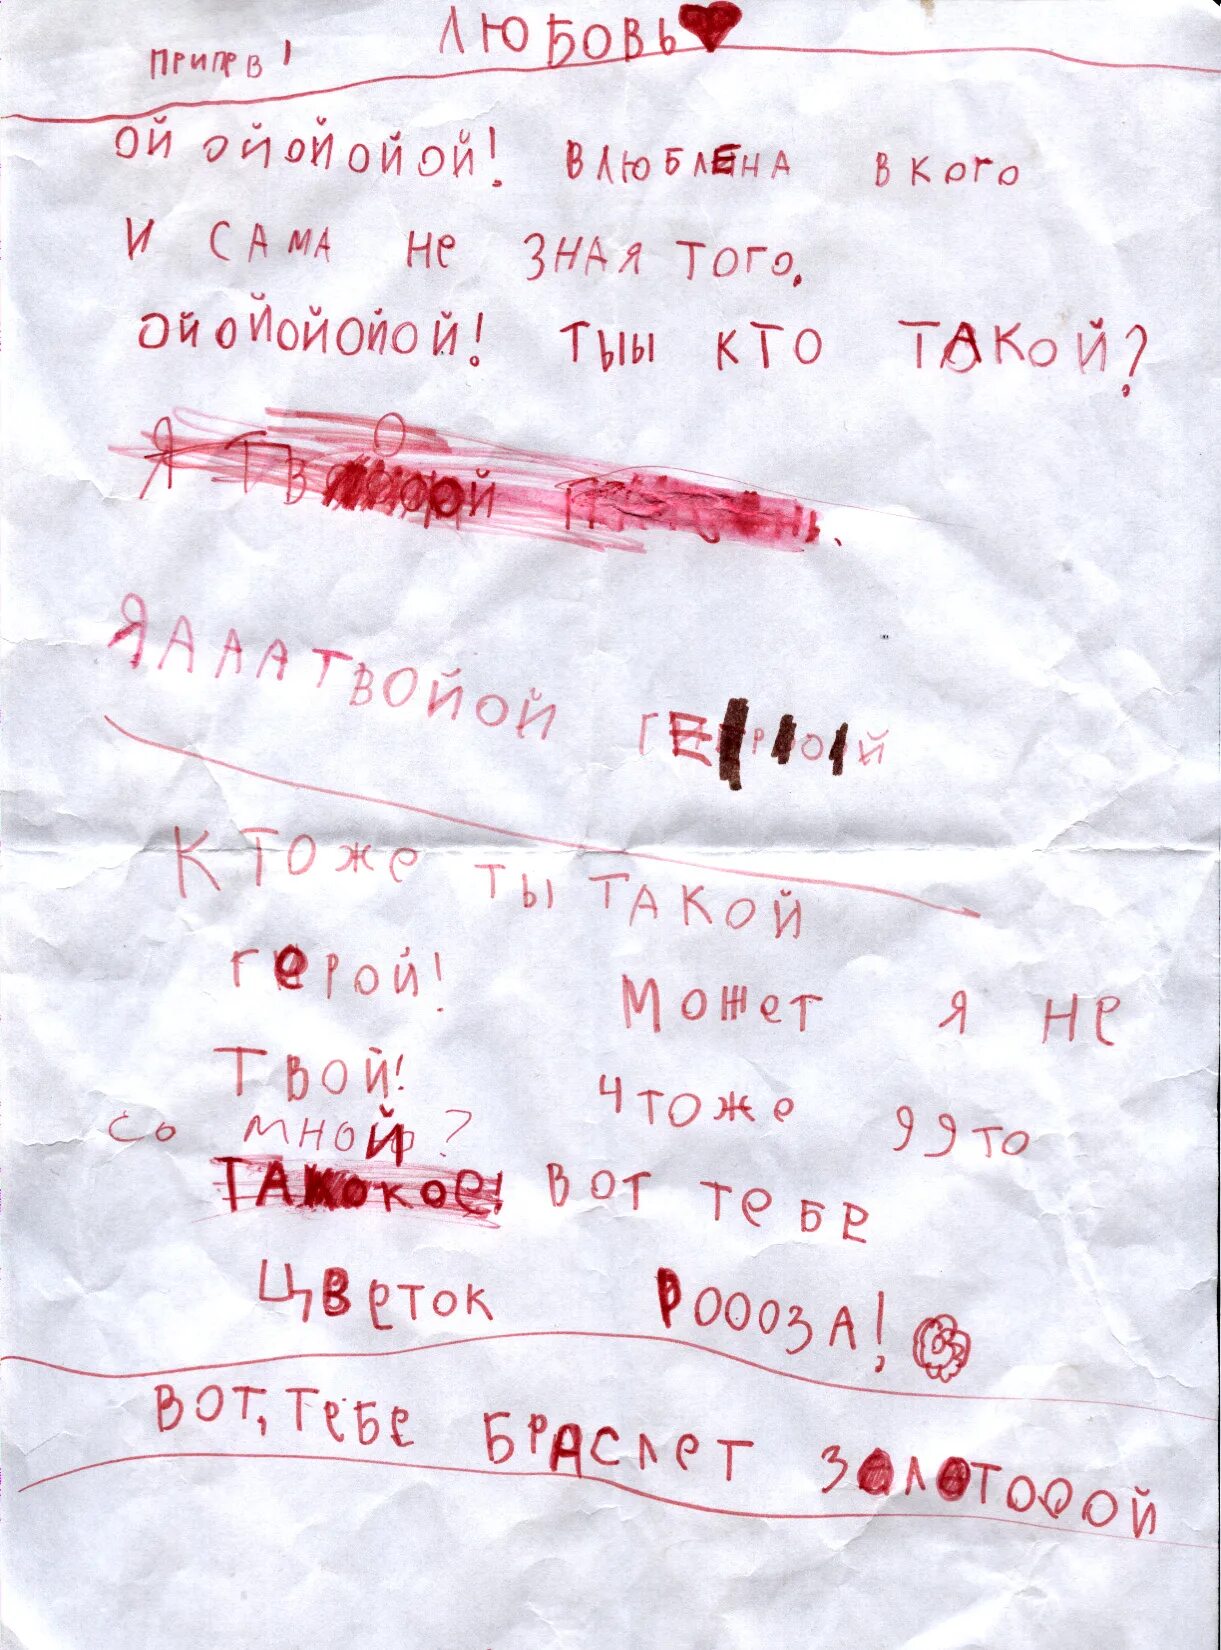 ЛЮБОВЬ
Припев 1
ОЙ ОЙОЙОЙОЙ! ВЛЮБЛЕНА В КОГО
И САМА Не ЗНАЯ ТОГО.
ОЙОЙОЙОЙОЙ! ТЫЫ КТО ТАКОЙ?
Я ТВОООЙ
ЯАААТВОЙОЙ ГЕРОЙ
КТОже ТЫ ТАКОЙ
герОЙ! Может я не
ТВОЙ! Чтоже ЯЯТО
со мной?
ТАКОКОе! ВОТ Тебе
ЦВеТОК РОООЗА!
ВОТ, Тебе БРАСЛеТ ЗОЛОТОООЙ